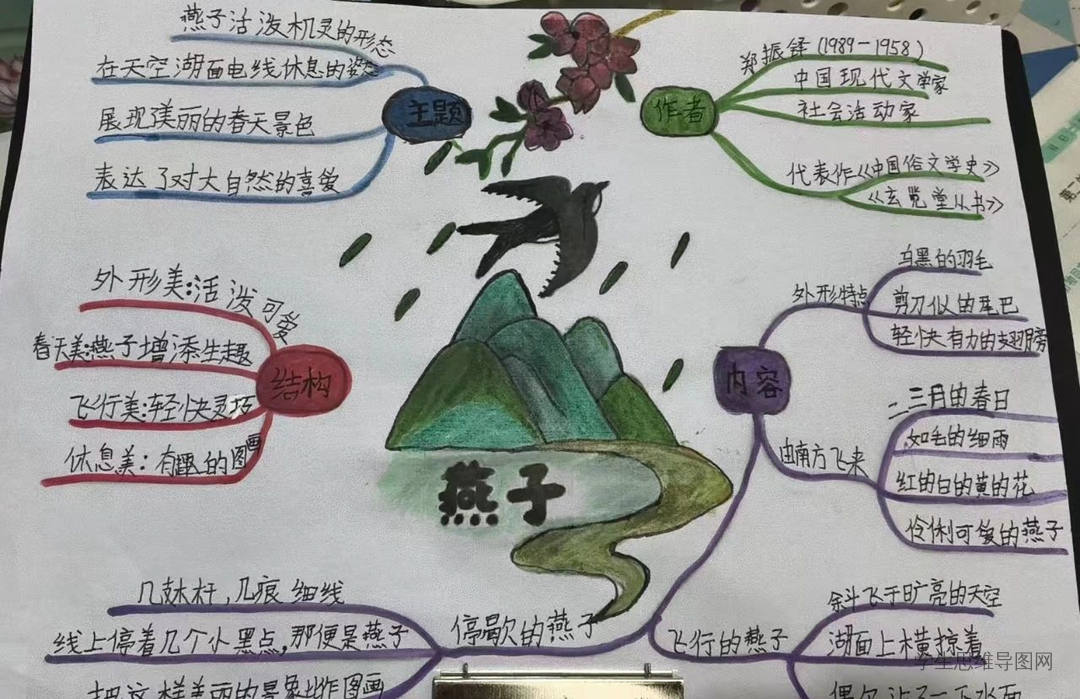 燕子活泼机灵的形态
在天空湖面电线休息的姿态
主题
展现美丽的春天景色
表达了对大自然的喜爱
郑振铎(1989-1958)
中国现代文学家
作者
社会活动家
代表作《中国俗文学史》
《玄览堂丛书》
外形美:活泼可爱
春天美:燕子增添生趣
结构
飞行美:轻快灵巧
休息美:有趣的图画
乌黑的羽毛
外形特点
剪刀似的尾巴
轻快有力的翅膀
内容
二三月的春日
如毛的细雨
由南方飞来
红的白的黄的花
伶俐可爱的燕子
燕子
几木杆,几痕细线
线上停着几个小黑点,那便是燕子
停歇的燕子
飞行的燕子
斜飞于旷亮的天空
湖面上横掠着
学生思维导图网